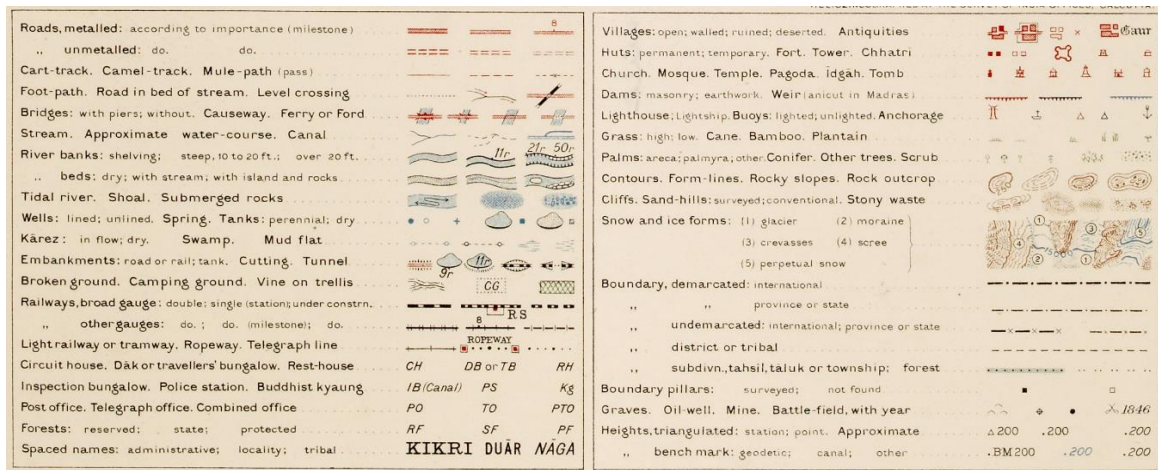 Roads, metalled: according to importance (milestone) 8
„ unmetalled: do. do.
Cart-track. Camel-track. Mule-path (pass)
Foot-path. Road in bed of stream. Level crossing
Bridges: with piers; without. Causeway. Ferry or Ford
Stream. Approximate water-course. Canal
River banks: shelving; steep, 10 to 20 ft.; over 20 ft. 11r 21r 50r
„ beds: dry; with stream; with island and rocks
Tidal river. Shoal. Submerged rocks
Wells: lined; unlined. Spring. Tanks: perennial; dry
Kārez: in flow; dry. Swamp. Mud flat
Embankments: road or rail; tank. Cutting. Tunnel 9r 11r
Broken ground. Camping ground. Vine on trellis CG
Railways, broad gauge: double; single (station); under constrn. RS
„ other gauges: do.; do. (milestone); do. 8
Light railway or tramway. Ropeway. Telegraph line ROPEWAY
Circuit house. Dāk or travellers' bungalow. Rest-house CH DB or TB RH
Inspection bungalow. Police station. Buddhist kyaung IB (Canal) PS Kg
Post office. Telegraph office. Combined office PO TO PTO
Forests: reserved; state; protected RF SF PF
Spaced names: administrative; locality; tribal KIKRI DUĀR NĀGA
Villages: open; walled; ruined; deserted. Antiquities Gaur
Huts: permanent; temporary. Fort. Tower. Chhatri
Church. Mosque. Temple. Pagoda. Īdgāh. Tomb
Dams: masonry; earthwork. Weir (anicut in Madras)
Lighthouse; Lightship. Buoys: lighted; unlighted. Anchorage
Grass: high; low. Cane. Bamboo. Plantain
Palms: areca; palmyra; other. Conifer. Other trees. Scrub
Contours. Form-lines. Rocky slopes. Rock outcrop
Cliffs. Sand-hills: surveyed; conventional. Stony waste
Snow and ice forms: (1) glacier (2) moraine
(3) crevasses (4) scree
(5) perpetual snow
1 3 5 4 2 1
Boundary, demarcated: international
„ „ province or state
„ undemarcated: international; province or state
„ district or tribal
„ subdivn., tahsil, tāluk or township; forest
Boundary pillars: surveyed; not found
Graves. Oil-well. Mine. Battle-field, with year 1846
Heights, triangulated: station; point. Approximate 200 .200 .200
„ bench mark: geodetic; canal; other .BM 200 .200 .200